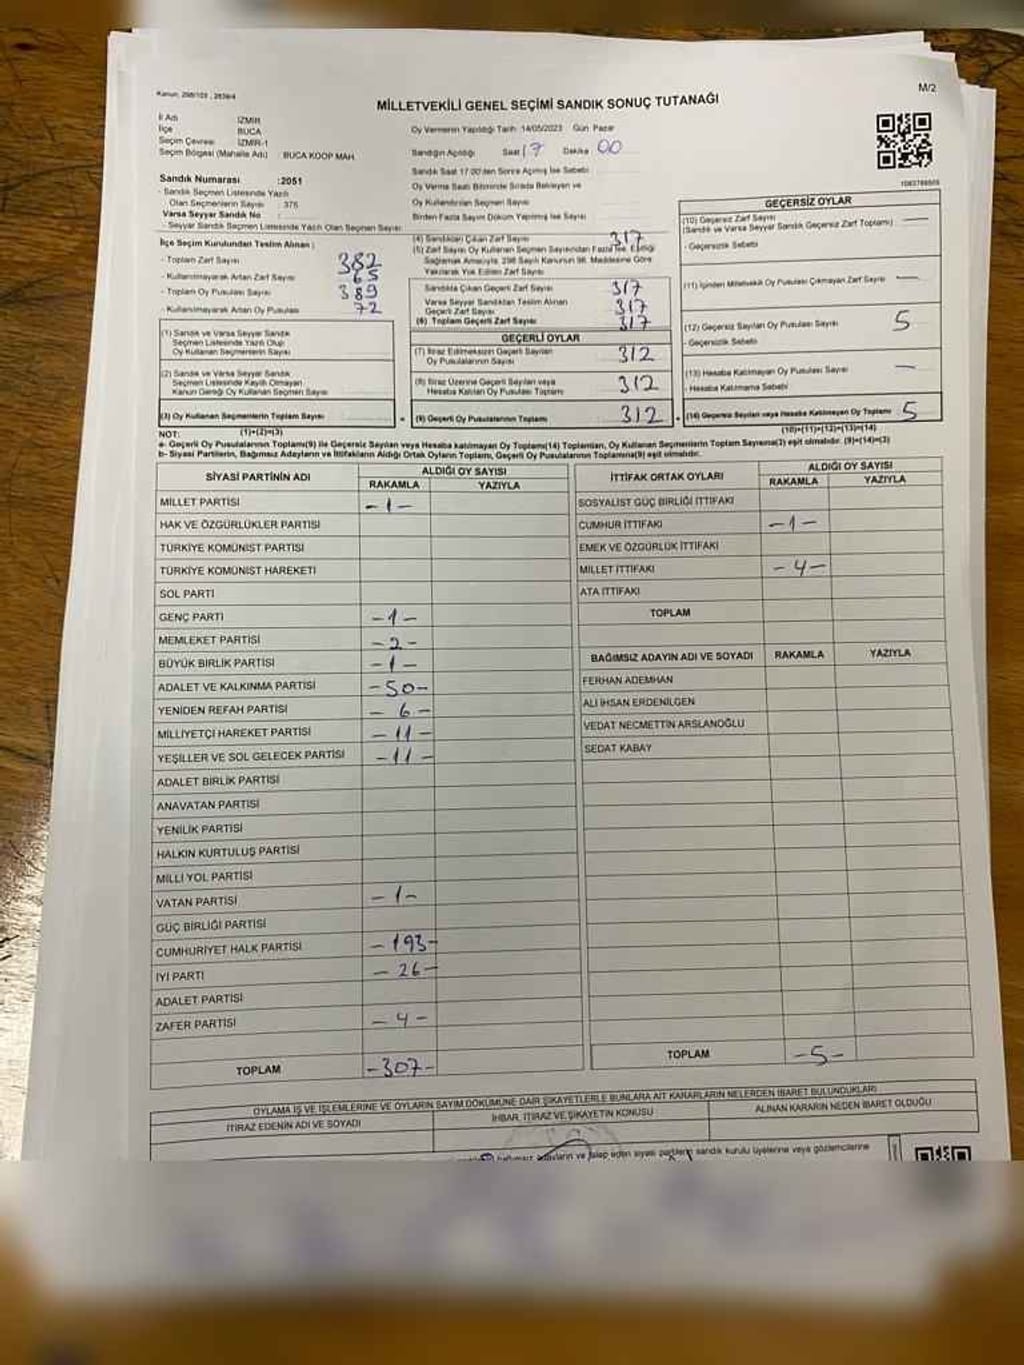 Kanun: 298/103 , 2839/4
M/2
MİLLETVEKİLİ GENEL SEÇİMİ SANDIK SONUÇ TUTANAĞI
İl Adı : İZMİR
İlçe : BUCA
Seçim Çevresi : İZMİR-1
Seçim Bölgesi (Mahalle Adı) : BUCA KOOP MAH.
Sandık Numarası :2051
- Sandık Seçmen Listesinde Yazılı
Olan Seçmenlerin Sayısı : 376
Varsa Seyyar Sandık No :
- Seyyar Sandık Seçmen Listesinde Yazılı Olan Seçmen Sayısı
Oy Vermenin Yapıldığı Tarih: 14/05/2023 Gün: Pazar
Sandığın Açıldığı Saat 17 Dakika 00
Sandık Saat 17.00'den Sonra Açılmış İse Sebebi
Oy Verme Saati Bitiminde Sırada Bekleyen ve
Oy Kullandırılan Seçmen Sayısı
Birden Fazla Sayım Döküm Yapılmış İse Sayısı
İlçe Seçim Kurulundan Teslim Alınan :
- Toplam Zarf Sayısı 382
- Kullanılmayarak Artan Zarf Sayısı 65
- Toplam Oy Pusulası Sayısı 389
- Kullanılmayarak Artan Oy Pusulası 72
(1) Sandık ve Varsa Seyyar Sandık
Seçmen Listesinde Yazılı Olup
Oy Kullanan Seçmenlerin Sayısı
(2) Sandık ve Varsa Seyyar Sandık
Seçmen Listesinde Kayıtlı Olmayan
Kanun Gereği Oy Kullanan Seçmen Sayısı
(3) Oy Kullanan Seçmenlerin Toplam Sayısı
(1)+(2)=(3)
(4) Sandıktan Çıkan Zarf Sayısı 317
(5) Zarf Sayısı Oy Kullanan Seçmen Sayısından Fazla İse, Eşitliği
Sağlamak Amacıyla, 298 Sayılı Kanunun 98. Maddesine Göre
Yakılarak Yok Edilen Zarf Sayısı
Sandıkta Çıkan Geçerli Zarf Sayısı 317
Varsa Seyyar Sandıktan Teslim Alınan
Geçerli Zarf Sayısı 317
(6) Toplam Geçerli Zarf Sayısı 317
GEÇERLİ OYLAR
(7) İtiraz Edilmeksizin Geçerli Sayılan
Oy Pusulalarının Sayısı 312
(8) İtiraz Üzerine Geçerli Sayılan veya
Hesaba Katılan Oy Pusulası Toplamı 312
= (9) Geçerli Oy Pusulalarının Toplamı 312
GEÇERSİZ OYLAR
(10) Geçersiz Zarf Sayısı —
(Sandık ve Varsa Seyyar Sandık Geçersiz Zarf Toplamı)
- Geçersizlik Sebebi
(11) İçinden Milletvekili Oy Pusulası Çıkmayan Zarf Sayısı —
(12) Geçersiz Sayılan Oy Pusulası Sayısı 5
- Geçersizlik Sebebi
(13) Hesaba Katılmayan Oy Pusulası Sayısı —
- Hesaba Katılmama Sebebi
+ (14) Geçersiz Sayılan veya Hesaba Katılmayan Oy Toplamı 5
(10)+(11)+(12)+(13)=(14)
NOT:
a- Geçerli Oy Pusulalarının Toplamı(9) ile Geçersiz Sayılan veya Hesaba katılmayan Oy Toplamı(14) Toplamları, Oy Kullanan Seçmenlerin Toplam Sayısına(3) eşit olmalıdır. (9)+(14)=(3)
b- Siyasi Partilerin, Bağımsız Adayların ve İttifakların Aldığı Ortak Oyların Toplamı, Geçerli Oy Pusulalarının Toplamına(9) eşit olmalıdır.
SİYASİ PARTİNİN ADI ALDIĞI OY SAYISI
RAKAMLA YAZIYLA
MİLLET PARTİSİ -1-
HAK VE ÖZGÜRLÜKLER PARTİSİ
TÜRKİYE KOMÜNİST PARTİSİ
TÜRKİYE KOMÜNİST HAREKETİ
SOL PARTİ
GENÇ PARTİ -1-
MEMLEKET PARTİSİ -2-
BÜYÜK BİRLİK PARTİSİ -1-
ADALET VE KALKINMA PARTİSİ -50-
YENİDEN REFAH PARTİSİ -6-
MİLLİYETÇİ HAREKET PARTİSİ -11-
YEŞİLLER VE SOL GELECEK PARTİSİ -11-
ADALET BİRLİK PARTİSİ
ANAVATAN PARTİSİ
YENİLİK PARTİSİ
HALKIN KURTULUŞ PARTİSİ
MİLLİ YOL PARTİSİ
VATAN PARTİSİ -1-
GÜÇ BİRLİĞİ PARTİSİ
CUMHURİYET HALK PARTİSİ -193-
İYİ PARTİ -26-
ADALET PARTİSİ
ZAFER PARTİSİ -4-
TOPLAM -307-
İTTİFAK ORTAK OYLARI ALDIĞI OY SAYISI
RAKAMLA YAZIYLA
SOSYALİST GÜÇ BİRLİĞİ İTTİFAKI
CUMHUR İTTİFAKI -1-
EMEK VE ÖZGÜRLÜK İTTİFAKI
MİLLET İTTİFAKI -4-
ATA İTTİFAKI
TOPLAM
BAĞIMSIZ ADAYIN ADI VE SOYADI RAKAMLA YAZIYLA
FERHAN ADEMHAN
ALİ İHSAN ERDENİLGEN
VEDAT NECMETTİN ARSLANOĞLU
SEDAT KABAY
TOPLAM -5-
OYLAMA İŞ VE İŞLEMLERİNE VE OYLARIN SAYIM DÖKÜMÜNE DAİR ŞİKAYETLERLE BUNLARA AİT KARARLARIN NELERDEN İBARET BULUNDUKLARI
İTİRAZ EDENİN ADI VE SOYADI İHBAR, İTİRAZ VE ŞİKAYETİN KONUSU ALINAN KARARIN NEDEN İBARET OLDUĞU
bağımsız adayların ve talep eden siyasi partilerin sandık kurulu üyelerine veya gözlemcilerine